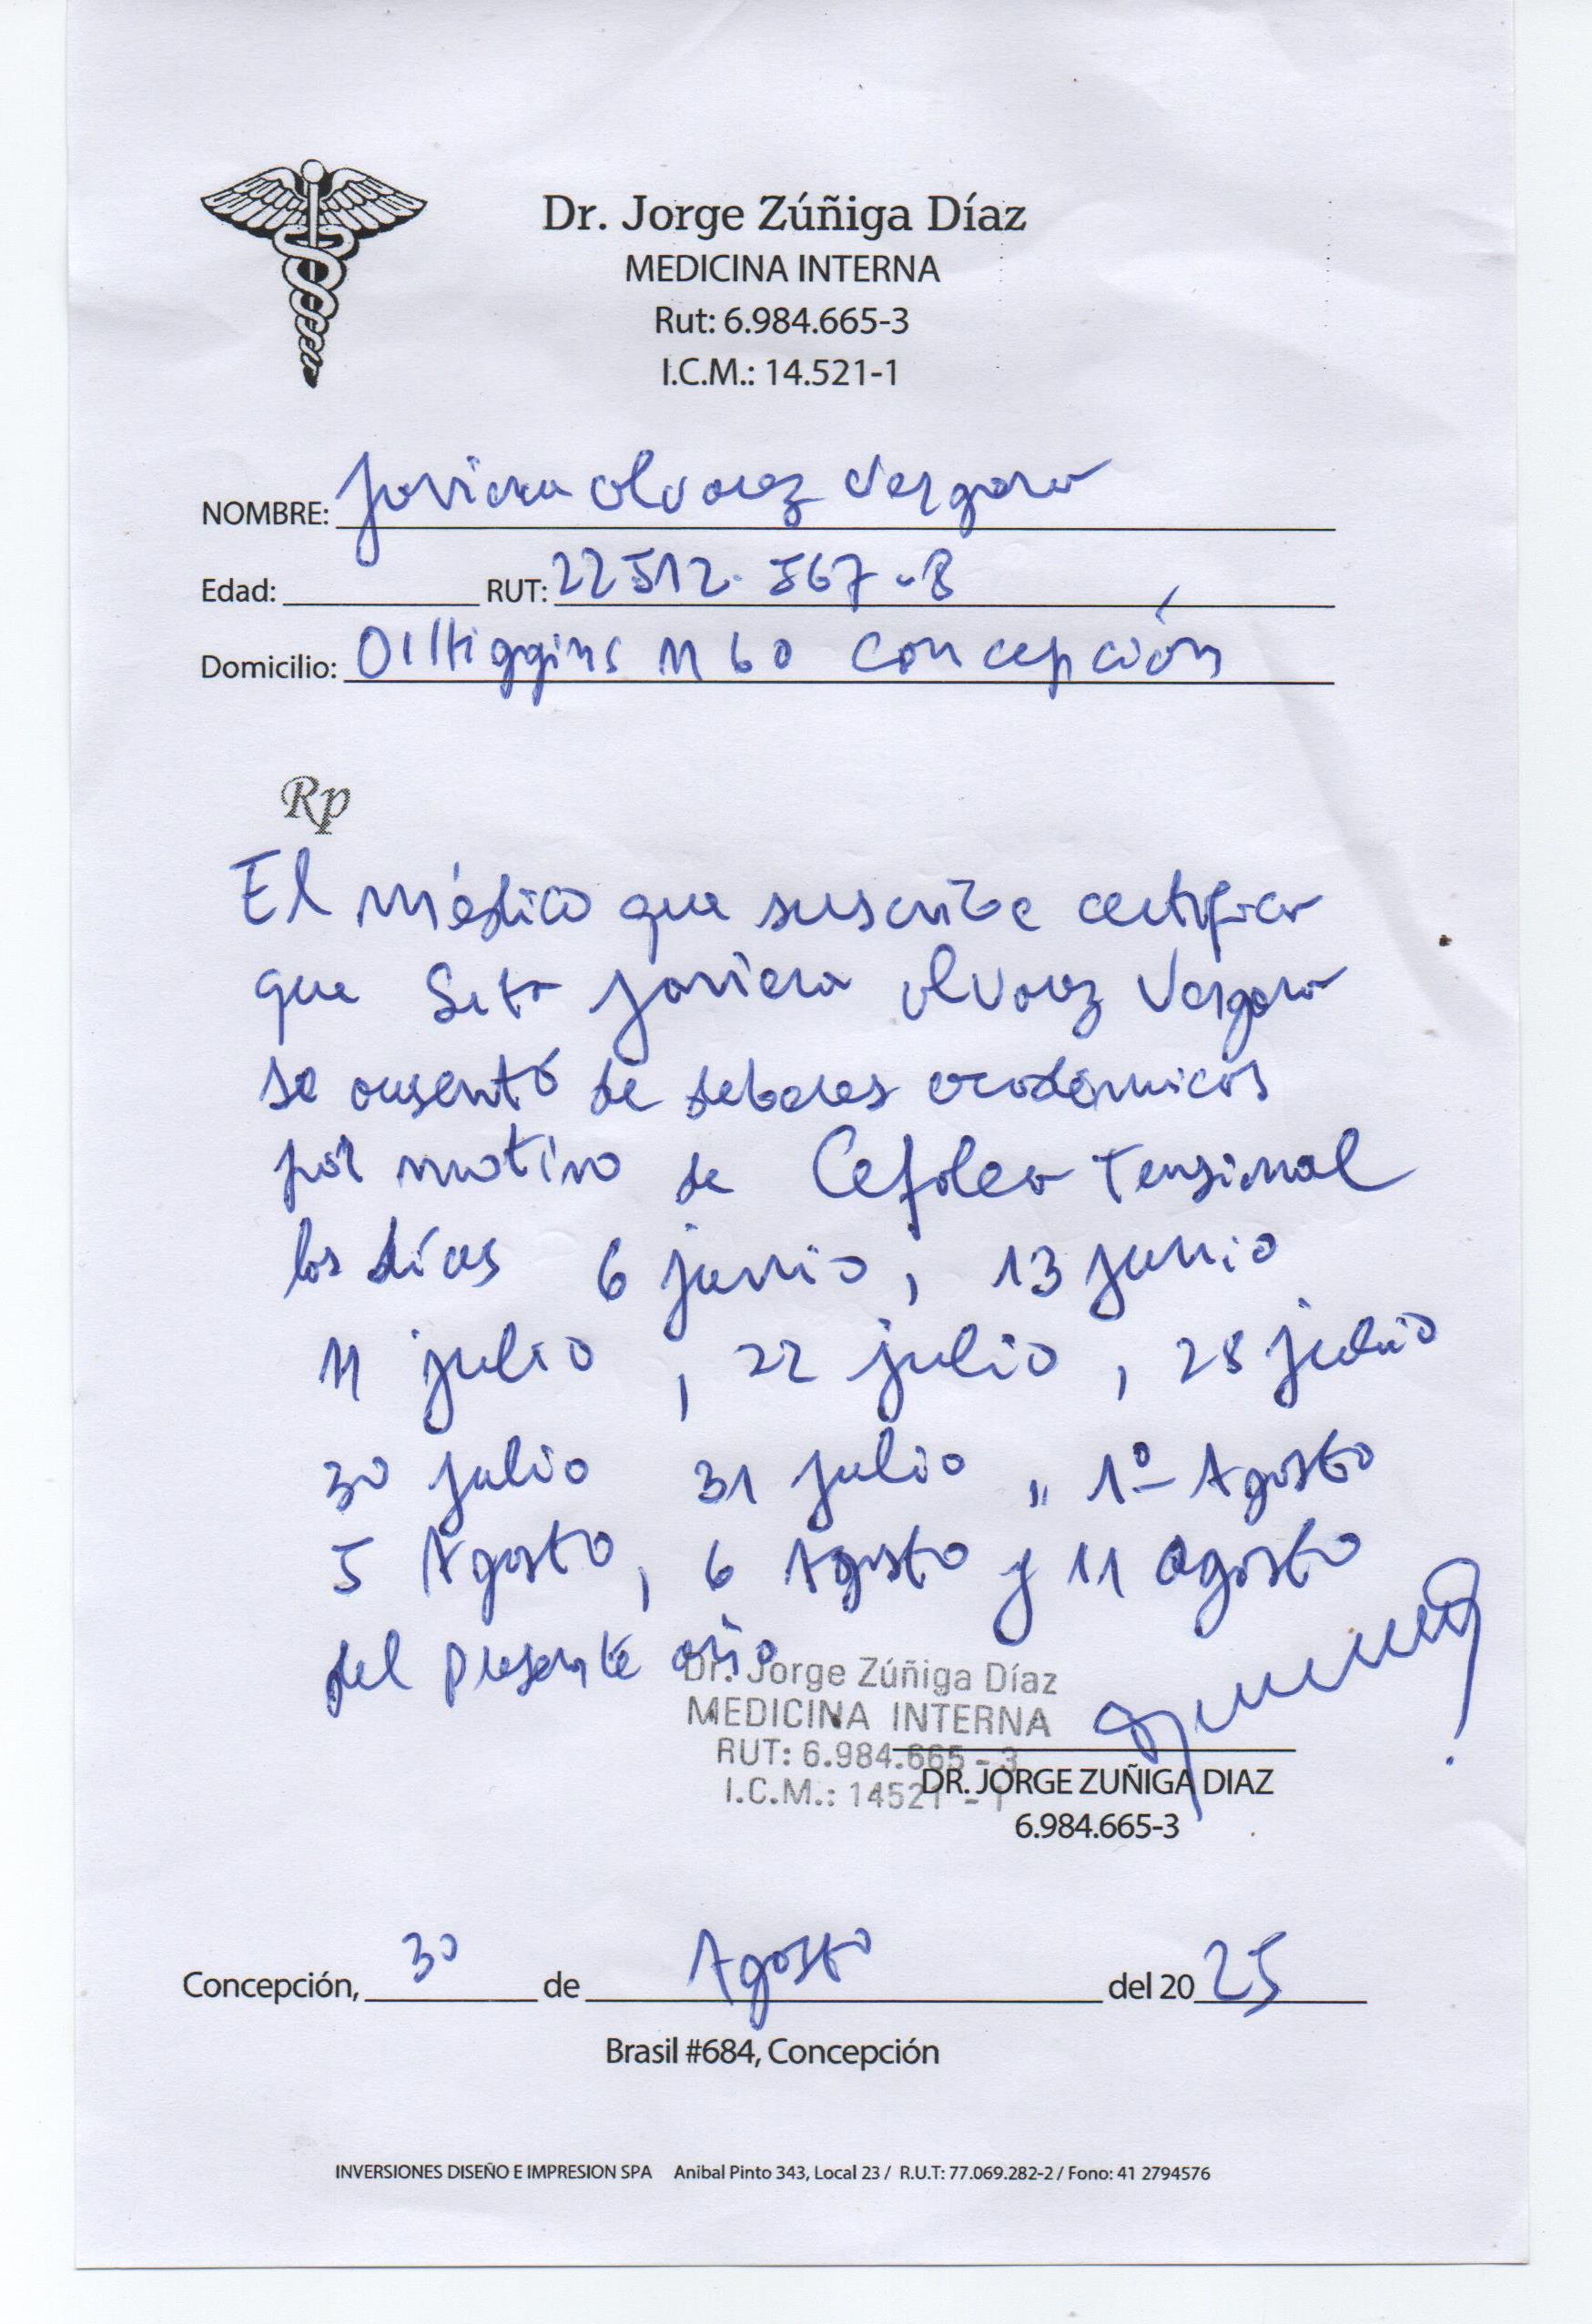 Dr. Jorge Zúñiga Díaz
MEDICINA INTERNA
Rut: 6.984.665-3
I.C.M.: 14.521-1
NOMBRE: Javiera Alvarez Vergara
Edad: RUT: 22512.567-8
Domicilio: O'Higgins 1160 Concepción
Rp
El Médico que suscribe certifica
que Srta Javiera Alvarez Vergara
se ausentó de deberes academicos
por motivo de Cefalea Tensional
los días 6 junio, 13 junio
11 julio, 22 julio, 28 julio
30 julio 31 julio, 1º Agosto
5 Agosto, 6 Agosto y 11 agosto
del presente año
Dr. Jorge Zúñiga Díaz
MEDICINA INTERNA
RUT: 6.984.665-3
I.C.M.: 14521-1
DR. JORGE ZUÑIGA DIAZ
6.984.665-3
Concepción, 30 de Agosto del 2025
Brasil #684, Concepción
INVERSIONES DISEÑO E IMPRESION SPA Anibal Pinto 343, Local 23 / R.U.T: 77.069.282-2 / Fono: 41 2794576